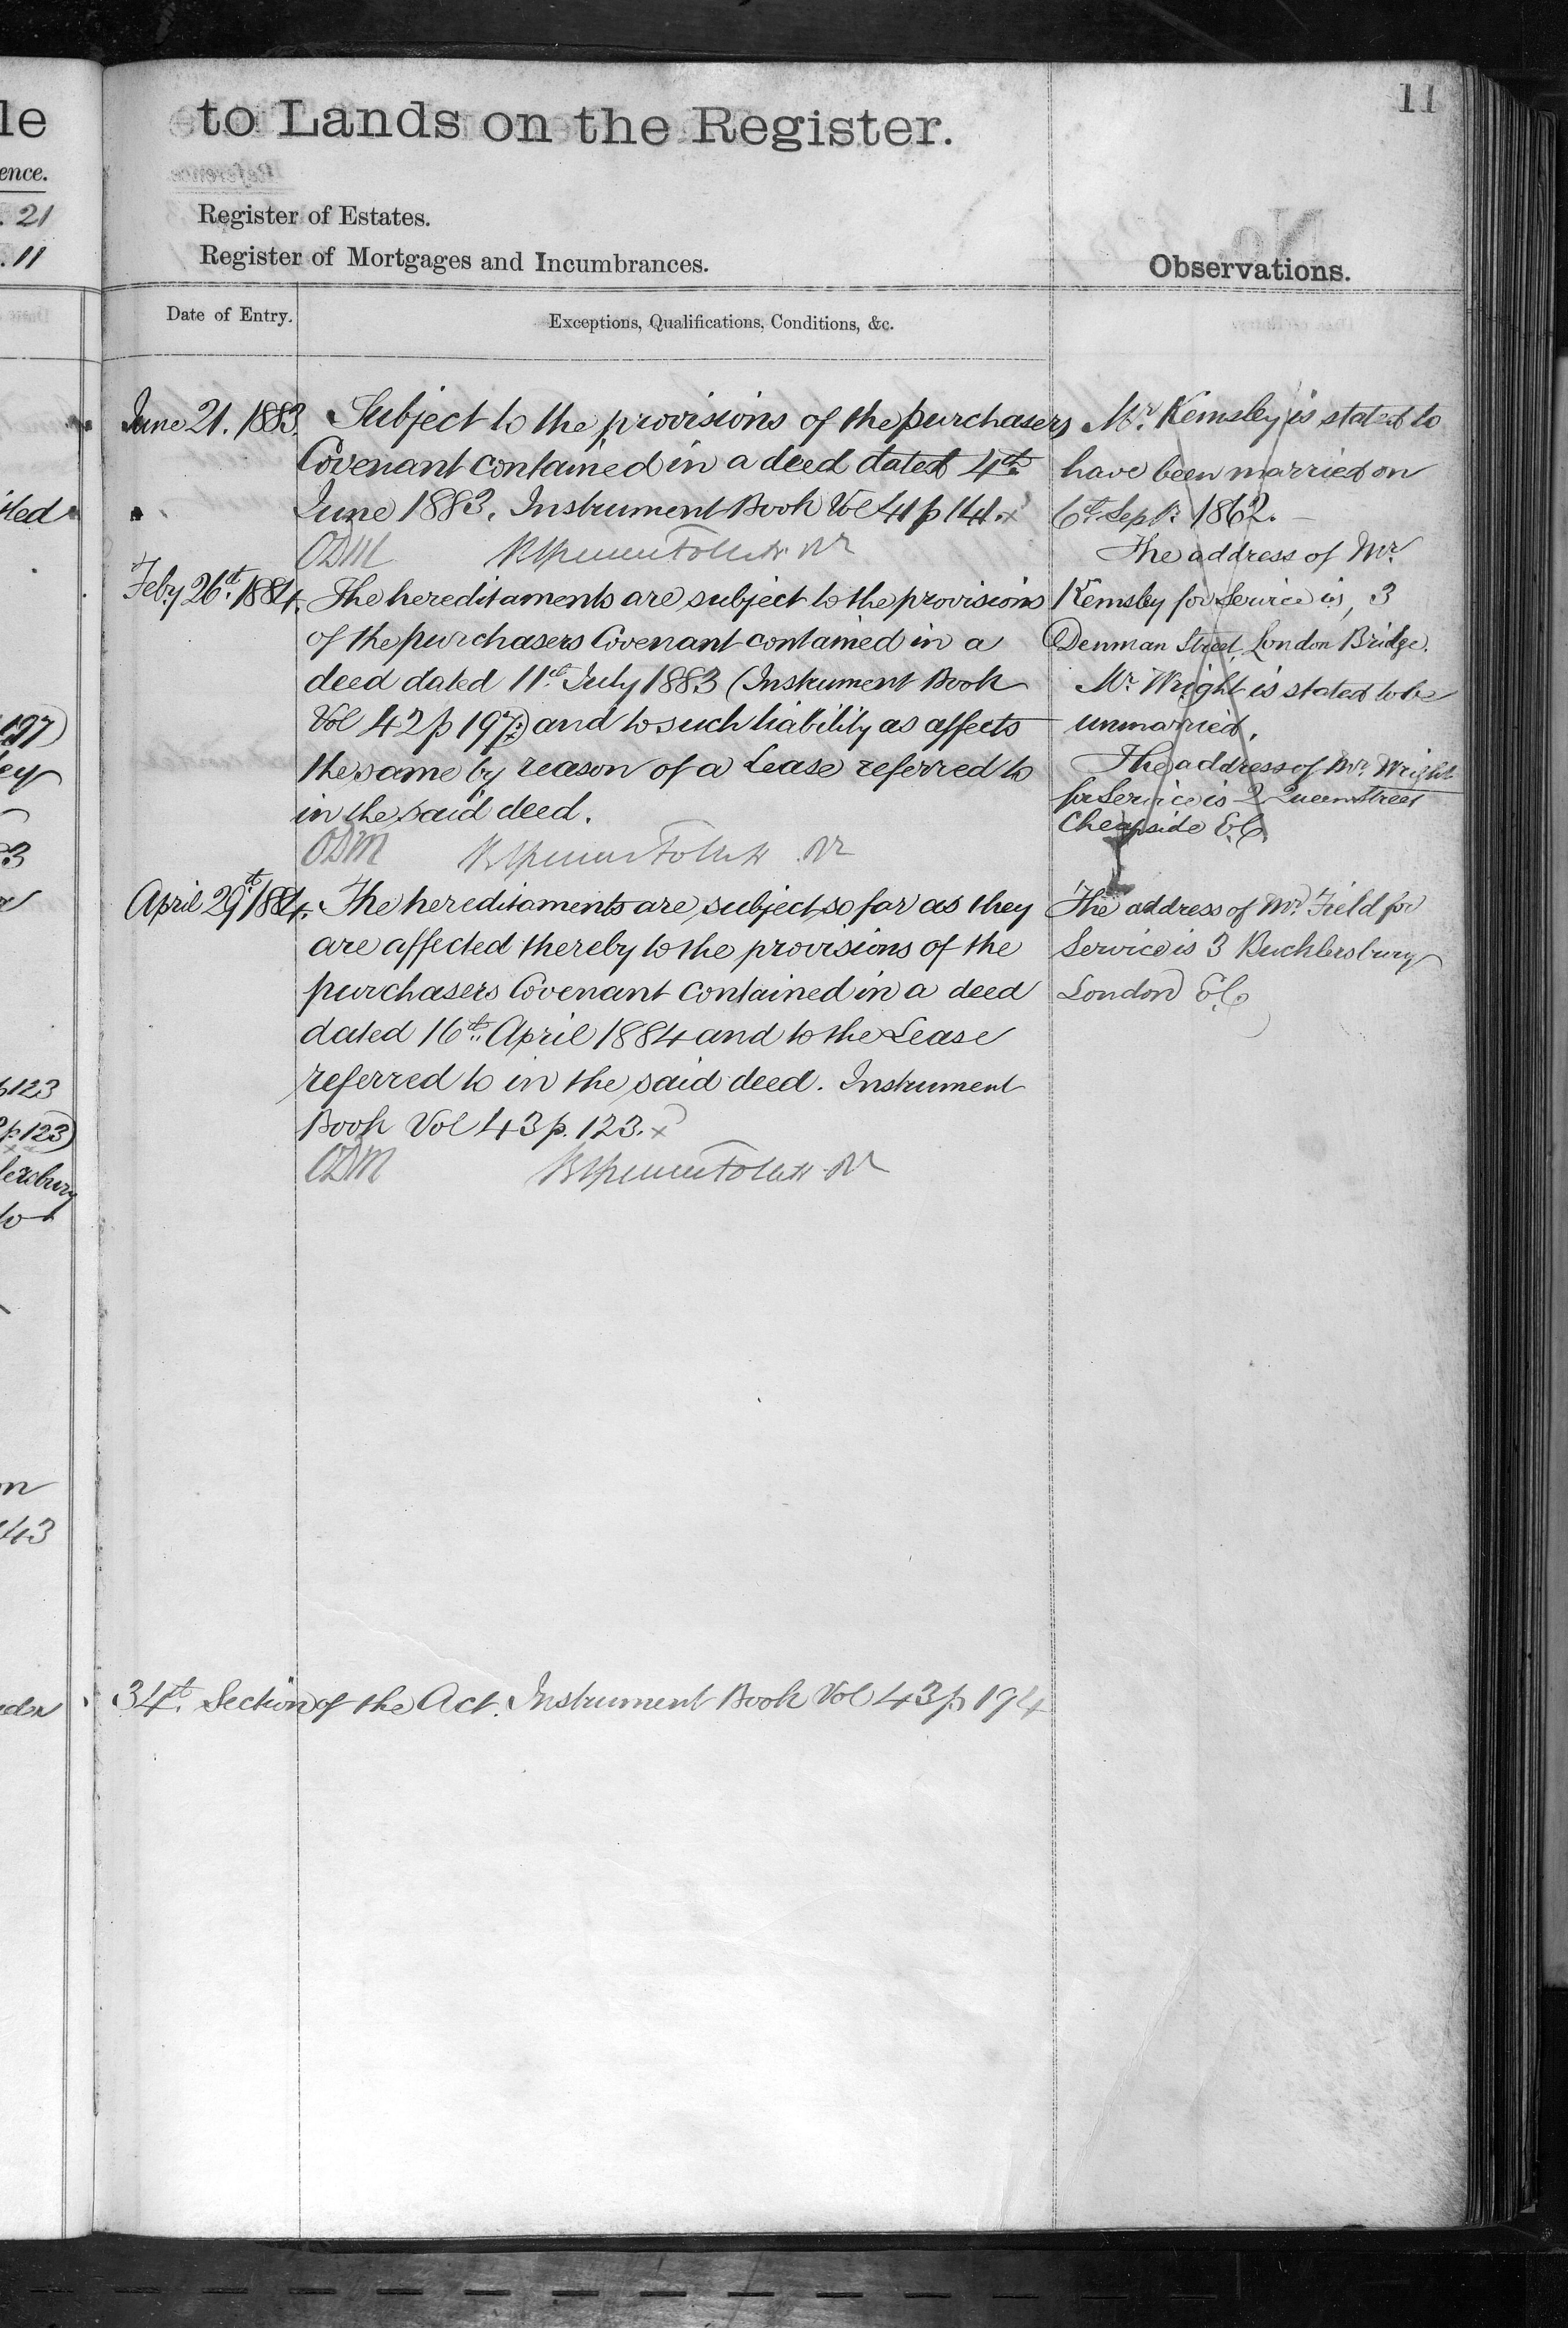 le
ence.
. 21
. 11
197)
ey
3
123
p. 123)
43
11
to Lands on the Register.
Register of Estates.
Register of Mortgages and Incumbrances.
Observations.
Date of Entry.
Exceptions, Qualifications, Conditions, &c.
June 21. 1883.
Subject to the provisions of the purchasers
Covenant contained in a deed dated 4th
June 1883. Instrument Book Vol 41 p 141. x
ODM
Feby 26th 1884.
The hereditaments are subject to the provisions
of the purchasers Covenant contained in a
deed dated 11th July 1883 (Instrument Book
Vol 42 p 197.) and to such liability as affects
the same by reason of a Lease referred to
in the said deed.
ODM
April 29th 1884.
The hereditaments are subject so far as they
are affected thereby to the provisions of the
purchasers Covenant contained in a deed
dated 16th April 1884 and to the Lease
referred to in the said deed. Instrument
Book Vol 43 p. 123. x
ODM
34th Section of the Act. Instrument Book Vol 43 p 194
Mr Kemsley is stated to
have been married on
6th Septr 1862.
The address of Mr
Kemsley for Service is, 3
Denman Street, London Bridge.
Mr Wright is stated to be
unmarried.
The address of Mr Wright
for Service is 2 Queen Street
Cheapside E.C.
The address of Mr Field for
Service is 3 Bucklersbury
London E.C.